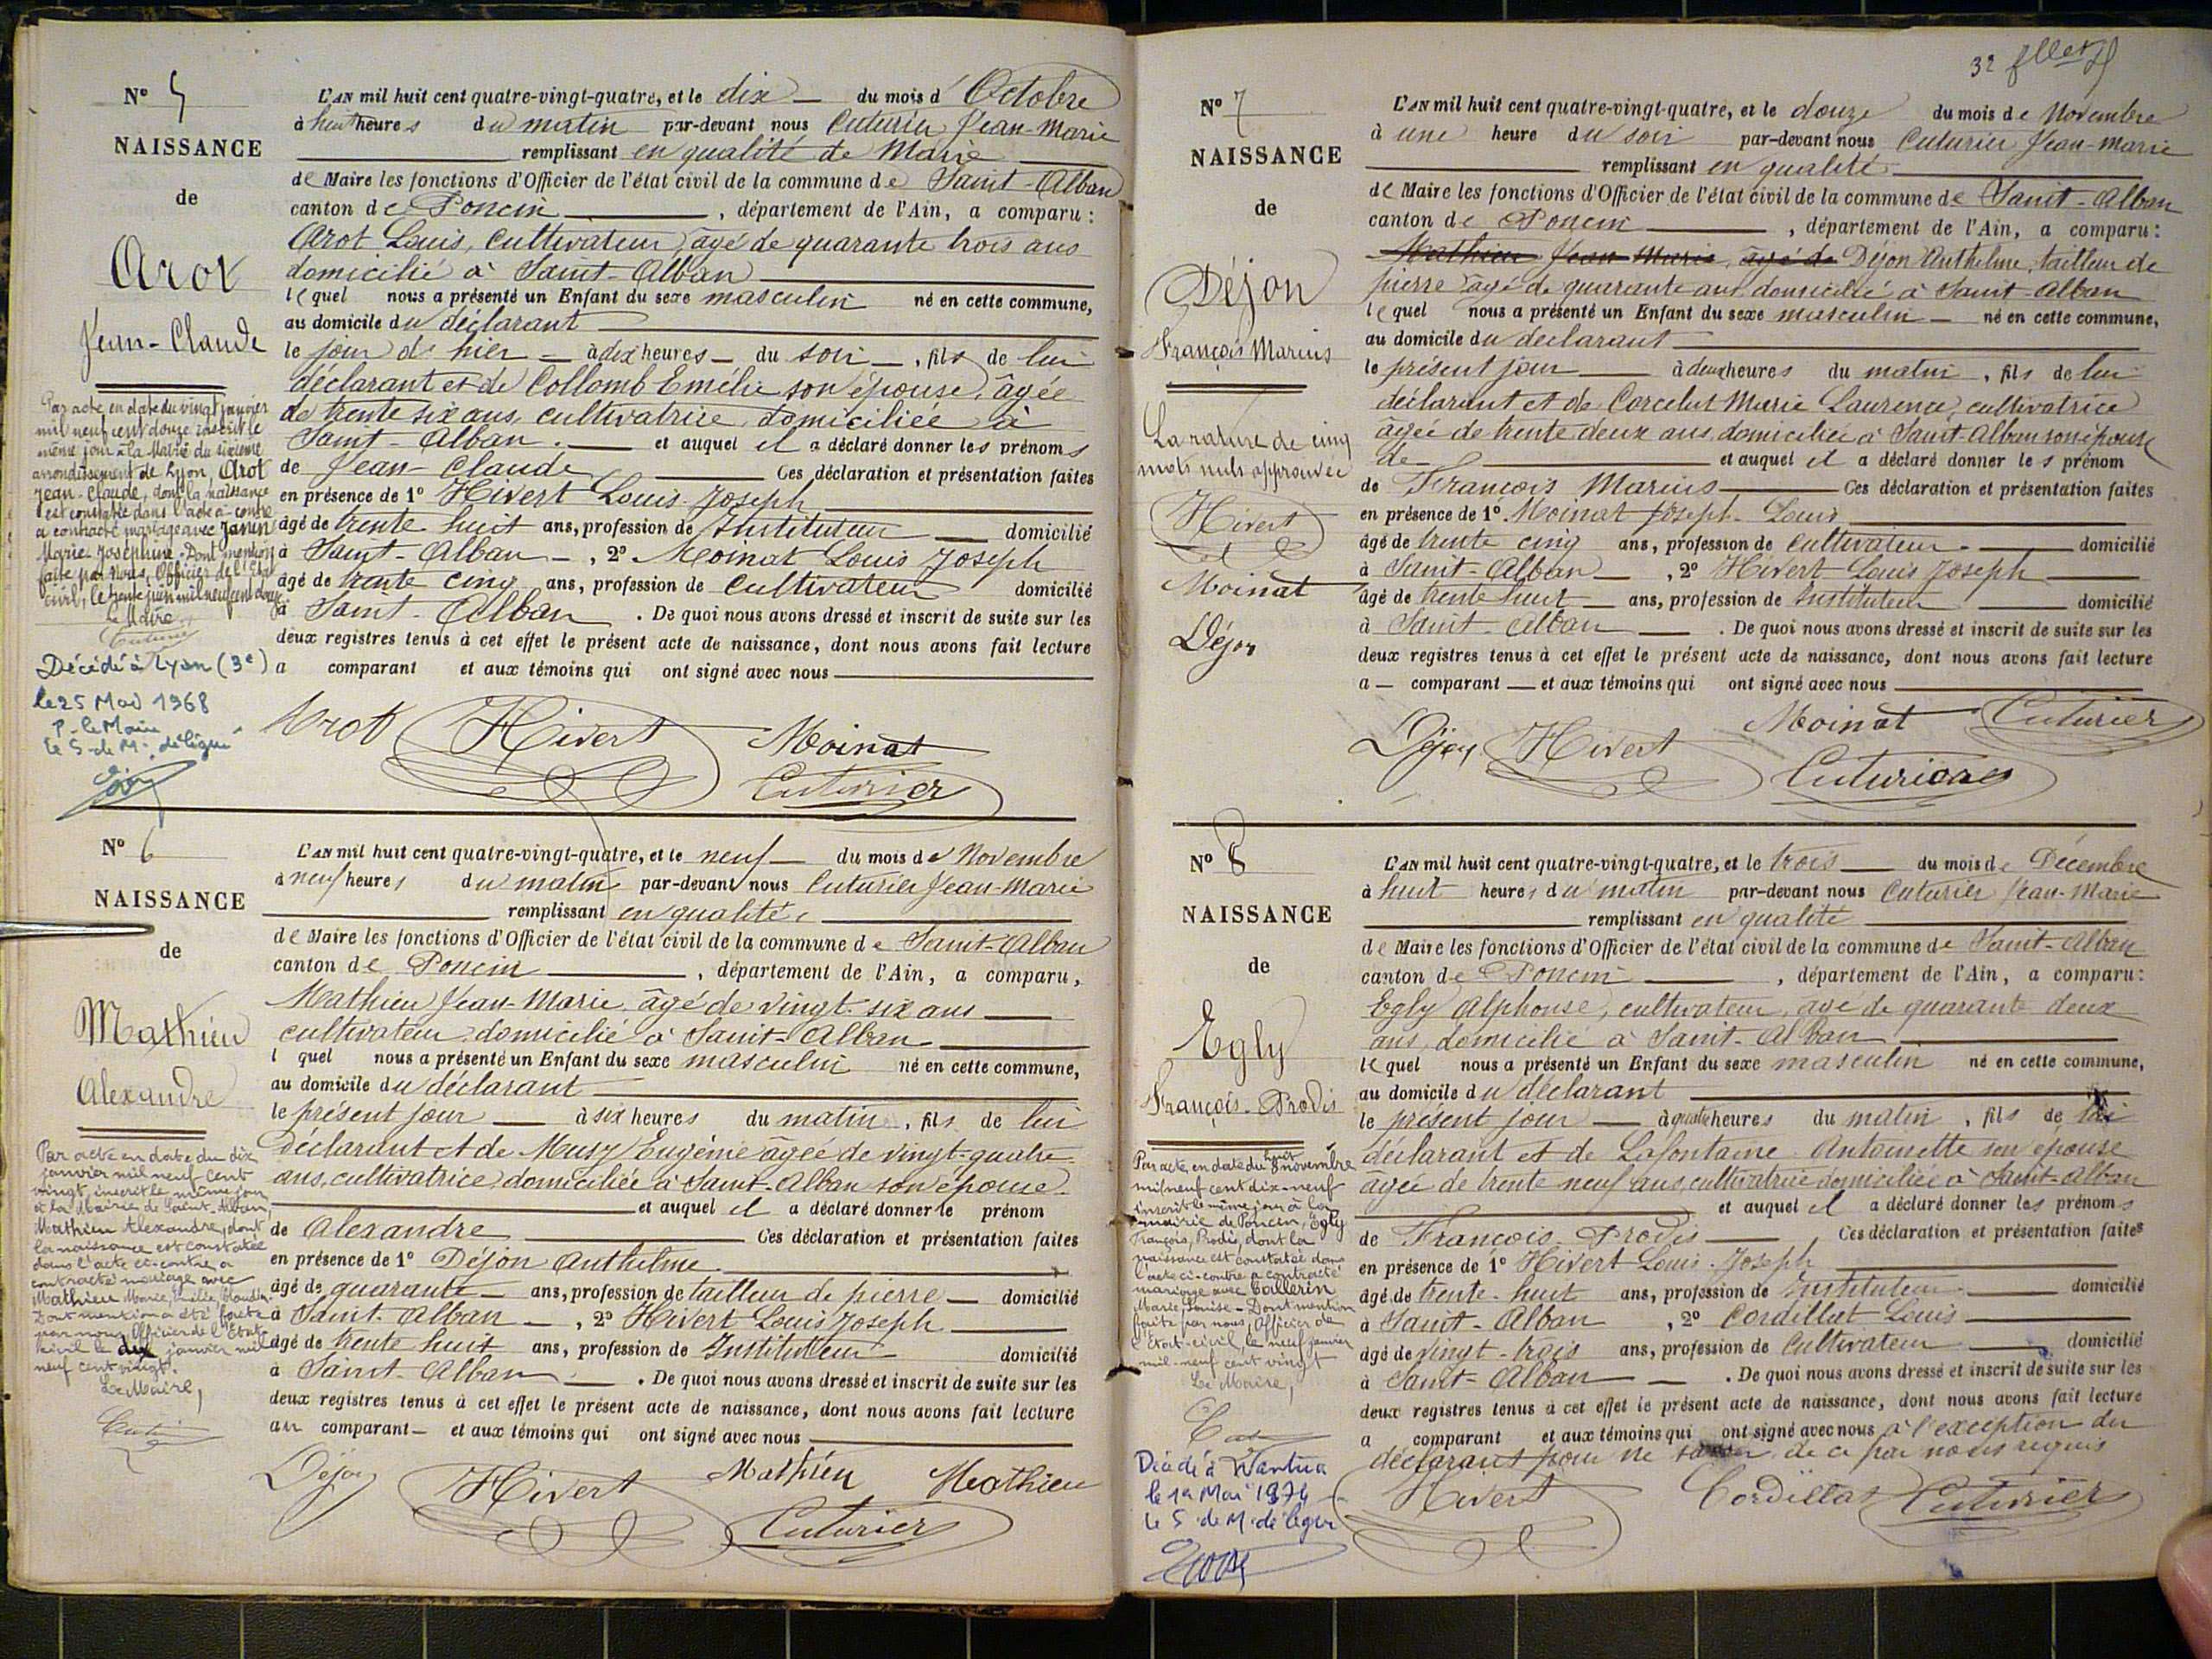 N° 5
NAISSANCE
de
Arot
Jean-Claude
Par acte en date du vingt janvier
mil neuf cent douze inscrit le
même jour à la Mairie du sixième
arrondissement de Lyon, Arot
Jean-Claude, dont la naissance
est constatée dans l'acte ci-contre
a contracté mariage avec Janin
Marie-Joséphine. Dont mention
faite par nous, Officier de l'Etat
civil, le trente juin mil neuf cent douze
Le Maire
Décédé à Lyon (3e)
le 25 Mai 1968
P. le Maire
le S. de M. délégué
L'AN mil huit cent quatre-vingt-quatre, et le dix du mois d'Octobre
à huit heures du matin par-devant nous Cuturier Jean-Marie
remplissant en qualité de Maire
de Maire les fonctions d'Officier de l'état civil de la commune de Saint-Alban
canton de Poncin, département de l'Ain, a comparu :
Arot Louis, cultivateur, âgé de quarante trois ans
domicilié à Saint-Alban
lequel nous a présenté un Enfant du sexe masculin né en cette commune,
au domicile du déclarant
le jour de hier à dix heures du soir, fils de lui
déclarant et de Collomb Emélie son épouse, âgée
de trente six ans, cultivatrice domiciliée à
Saint-Alban. et auquel il a déclaré donner les prénoms
de Jean-Claude Ces déclaration et présentation faites
en présence de 1° Hivert Louis-Joseph
âgé de trente huit ans, profession de Instituteur domicilié
à Saint-Alban, 2° Moinat Louis Joseph
âgé de trente cinq ans, profession de cultivateur domicilié
à Saint-Alban. De quoi nous avons dressé et inscrit de suite sur les
deux registres tenus à cet effet le présent acte de naissance, dont nous avons fait lecture
a comparant et aux témoins qui ont signé avec nous
Arot Hivert Moinat
Cuturier
N° 6
NAISSANCE
de
Mathieu
Alexandre
Par acte en date du dix
janvier mil neuf cent
vingt, inscrit le même jour
à la Mairie de Saint-Alban,
Mathieu Alexandre, dont
la naissance est constatée
dans l'acte ci-contre, a
contracté mariage avec
Mathieu Marie, Emilie, Claudine.
Dont mention a été faite
par nous, Officier de l'Etat
Civil le dix janvier mil
neuf cent vingt.
Le Maire,
L'AN mil huit cent quatre-vingt-quatre, et le neuf du mois de Novembre
à neuf heures du matin par-devant nous Cuturier Jean-Marie
remplissant en qualité,
de Maire les fonctions d'Officier de l'état civil de la commune de Saint-Alban
canton de Poncin, département de l'Ain, a comparu,
Mathieu Jean-Marie, âgé de vingt-six ans
cultivateur domicilié à Saint-Alban
l quel nous a présenté un Enfant du sexe masculin né en cette commune,
au domicile du déclarant
le présent jour à six heures du matin, fils de lui
déclarant et de Musy Eugénie âgée de vingt-quatre
ans, cultivatrice domiciliée à Saint-Alban son épouse.
et auquel il a déclaré donner le prénom
de Alexandre Ces déclaration et présentation faites
en présence de 1° Déjon Anthelme
âgé de quarante ans, profession de tailleur de pierre domicilié
à Saint-Alban, 2° Hivert Louis Joseph
âgé de trente huit ans, profession de Instituteur domicilié
à Saint-Alban. De quoi nous avons dressé et inscrit de suite sur les
deux registres tenus à cet effet le présent acte de naissance, dont nous avons fait lecture
au comparant et aux témoins qui ont signé avec nous
Déjon Hivert Mathieu Mathieu
Cuturier
32
N° 7
NAISSANCE
de
Déjon
François Marius
La rature de cinq
mots nuls approuvée
Hivert
Moinat
Déjon
L'AN mil huit cent quatre-vingt-quatre, et le douze du mois de Novembre
à une heure du soir par-devant nous Cuturier Jean-Marie
remplissant en qualité
de Maire les fonctions d'Officier de l'état civil de la commune de Saint-Alban
canton de Poncin, département de l'Ain, a comparu :
Mathieu Jean Marie, âgé de Déjon Anthelme, tailleur de
pierre âgé de quarante ans domicilié à Saint-Alban
lequel nous a présenté un Enfant du sexe masculin né en cette commune,
au domicile du déclarant
le présent jour à deux heures du matin, fils de lui
déclarant et de Corcelut Marie Laurence, cultivatrice
âgée de trente deux ans, domiciliée à Saint-Alban son épouse
de et auquel il a déclaré donner les prénom
de François Marius Ces déclaration et présentation faites
en présence de 1° Moinat Joseph-Louis
âgé de trente cinq ans, profession de Cultivateur domicilié
à Saint-Alban, 2° Hivert Louis Joseph
âgé de trente huit ans, profession de Instituteur domicilié
à Saint-Alban. De quoi nous avons dressé et inscrit de suite sur les
deux registres tenus à cet effet le présent acte de naissance, dont nous avons fait lecture
a comparant et aux témoins qui ont signé avec nous
Déjon Hivert Moinat Cuturier
Cuturier
N° 8
NAISSANCE
de
Egly
François-Prodis
Par acte, en date du huit novembre
mil neuf cent dix-neuf
inscrit le même jour à la
mairie de Poncin, Egly
François, Prodis, dont la
naissance est constatée dans
l'acte ci-contre a contracté
mariage avec Ballerin
Marie, Louise - Dont mention
faite par nous, Officier de
l'Etat-civil, le neuf janvier
mil-neuf cent vingt
Le Maire,
Décédé à Nantua
le 1er Mai 1974
Le S. de M. délégué
L'AN mil huit cent quatre-vingt-quatre, et le trois du mois de Décembre
à huit heures du matin par-devant nous Cuturier Jean-Marie
remplissant en qualité
de Maire les fonctions d'Officier de l'état civil de la commune de Saint-Alban
canton de Poncin, département de l'Ain, a comparu :
Egly Alphonse, cultivateur, âgé de quarante deux
ans, domicilié à Saint-Alban
lequel nous a présenté un Enfant du sexe masculin né en cette commune,
au domicile du déclarant
le présent jour à quatre heures du matin, fils de lui
déclarant et de Lafontaine Antoinette son épouse
âgée de trente neuf ans, cultivatrice domiciliée à Saint-Alban
et auquel il a déclaré donner les prénoms
de François-Prodis Ces déclaration et présentation faites
en présence de 1° Hivert Louis-Joseph
âgé de trente-huit ans, profession de Instituteur domicilié
à Saint-Alban, 2° Cordillat Louis
âgé de vingt-trois ans, profession de Cultivateur domicilié
à Saint-Alban. De quoi nous avons dressé et inscrit de suite sur les
deux registres tenus à cet effet le présent acte de naissance, dont nous avons fait lecture
a comparant et aux témoins qui ont signé avec nous à l'exception du
déclarant pour ne savoir de ce par nous requis
Hivert Cordillat Cuturier